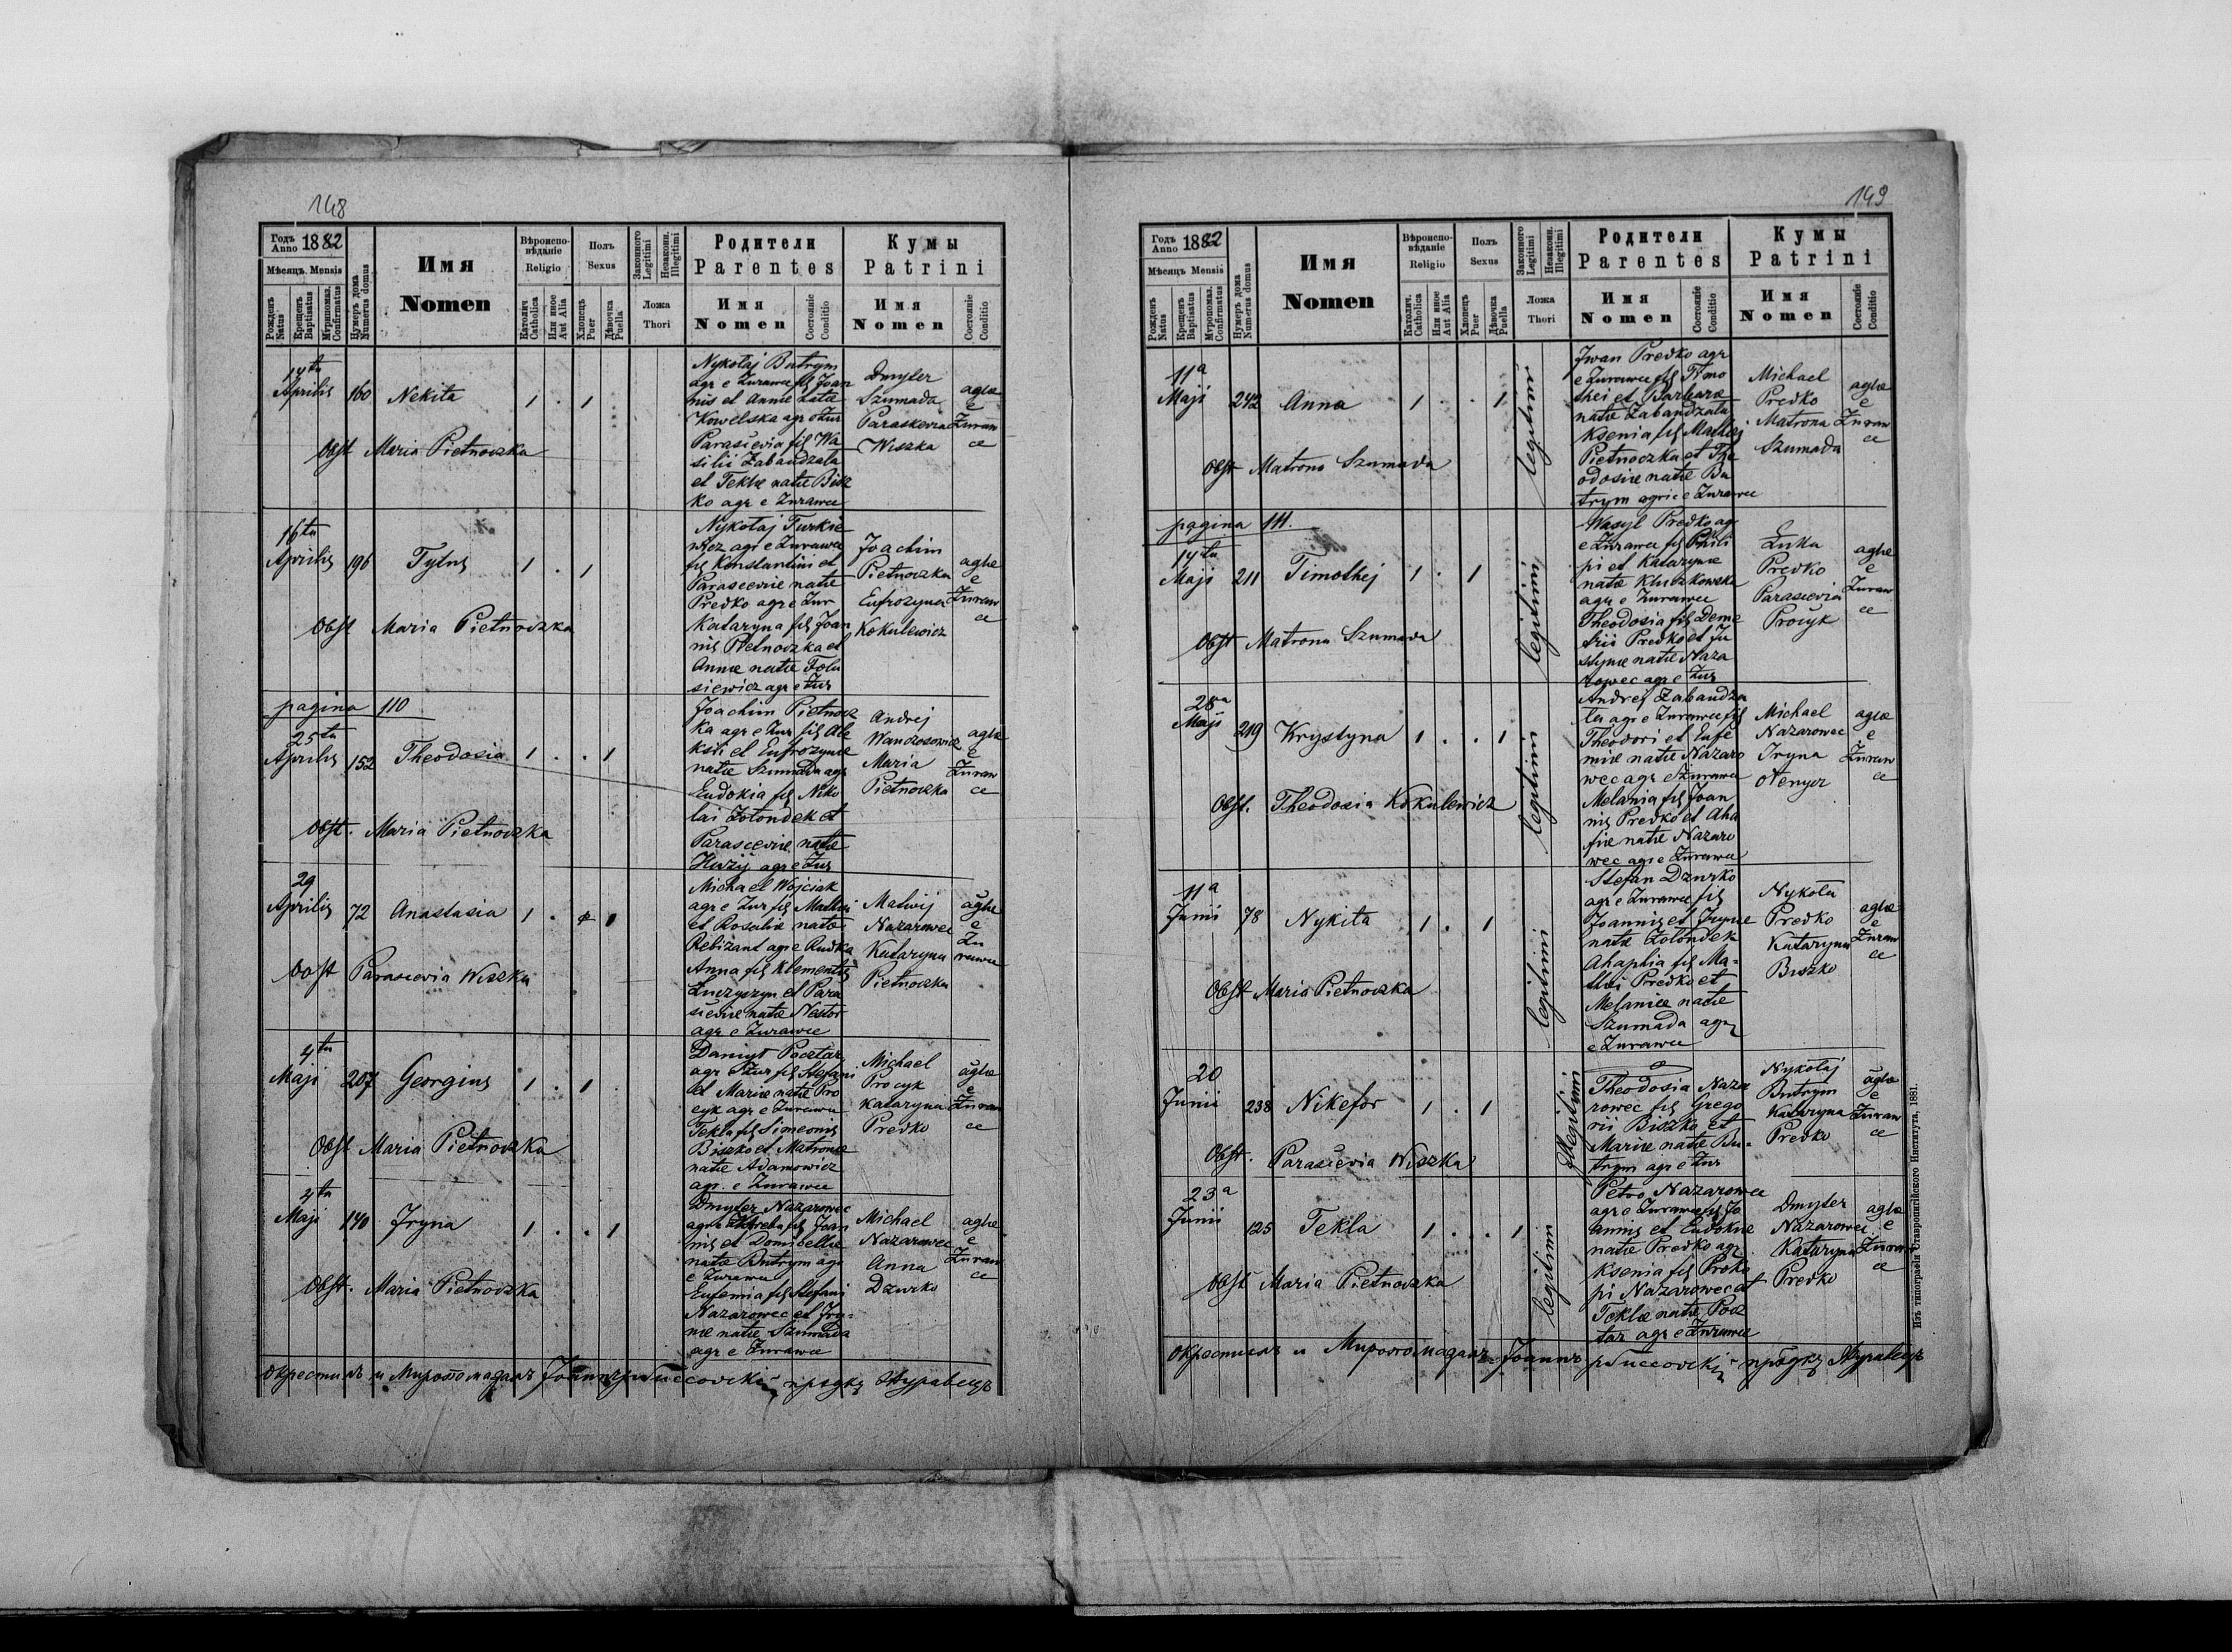 148
Годъ Anno 1882
Мѣсяцъ. Mensis
Рожденъ Natus
Крещенъ Baptisatus
Мѵропомаз. Confirmatus
Нумеръ дома Numerus domus
Имя Nomen
Вѣроиспо-вѣданіе Religio
Католич. Catholica
Или иное Aut Alia
Полъ Sexus
Хлопецъ Puer
Дѣвочка Puella
Законного Legitimi
Незаконн. Illegitimi
Ложа Thori
Родители Parentes
Имя Nomen
Состояніе Conditio
Кумы Patrini
Имя Nomen
Состояніе Conditio
14ta Aprilis 160 Nekita 1 . 1
Obst Maria Pietnoczka
Nykołaj Butrym
agr e Zurawce fil Joan
nis et Annæ natæ
Kowelska agr e Zur
Parasievia fil Wa
silii Zabaudzala
et Teklæ natæ Bisz
ko agr e Zurawce
Dmyter
Szumada
Paraskevia
Wiszka
aglæ
e
Zuraw
ce
16ta Aprilis 196 Tytus 1 . 1
Obst Maria Pietnoczka
Nykołaj Turkie
wicz agr e Zurawce
fil Konstantini et
Parascevie natæ
Predko agr e Zur
Kataryna fil Joan
nis Pietnoczka et
Annæ natæ Folu
siewicz agr e Zur
Joachim
Pietnoczka
Eufrozyna
Kokulewicz
aglæ
e
Zuraw
ce
pagina 110
25ta Aprilis 152 Theodosia 1 . . 1
Obst. Maria Pietnoczka
Joachim Pietnocz
ka agr e Zur fil Ale
ksii et Eufrozynæ
natæ Szumada agr
Eudokia fil Niko
lai Zołondek et
Parascevie natæ
Huzij agr e Zur
Andrej
Maria
Pietnoczka
aglæ
e
Zuraw
ce
29 Aprilis 72 Anastasia 1 . 1
Obst Parascevia Wiszka
Michael Wojciak
agr e Zur fil Mathei
et Rosaliæ natæ
Rebizant agr e Rudka
Anna fil Klementis
Łuczyszyn et Para
scevie natæ Nestor
agr e Zurawce
Matwij
Nazarowec
Kataryna
Pietnoczka
aglæ
e
Zu
rawce
4ta Maji 207 Georgius 1 . 1
Obst Maria Pietnoczka
Danyił Pocztar
agr e Zur fil Stefani
et Mariæ natæ Pro
cyk agr e Zurawce
Tekla fil Simeonis
Biszko et Matronæ
natæ Adamowicz
agr. e Zurawce
Michael
Procyk
Kataryna
Predko
aglæ
e
Zuraw
ce
4ta Maji 140 Iryna 1 . . 1
Obst. Maria Pietnoczka
Dmyter Nazarowec
fil Joan
nis et Domicellæ
natæ Butrym agr
e Zurawce
Eufemia fil Stefani
Nazarowec et Iry-
næ natæ Szumada
agr e Zurawce
Michael
Nazarowec
Anna
Dzurko
aglæ
e
Zuraw
ce
149
Годъ Anno 1882
Мѣсяцъ Mensis
Рожденъ Natus
Крещенъ Baptisatus
Мѵропомаз. Confirmatus
Нумеръ дома Numerus domus
Имя Nomen
Вѣроиспо-вѣданіе Religio
Католич. Catholica
Или иное Aut Alia
Полъ Sexus
Хлопецъ Puer
Дѣвочка Puella
Законного Legitimi
Незаконн. Illegitimi
Ложа Thori
Родители Parentes
Имя Nomen
Состояніе Conditio
Кумы Patrini
Имя Nomen
Состояніе Conditio
11a Maji 242 Anna 1 . . 1 legitimi
Obst Matrona Szumada
Iwan Predko agr
e Zurawce fil Timo
thei et Barbaræ
natæ Zabaudzała
Ksenia fil Mathej
Pietnoczka et The
odosiæ natæ Bu
trym agric e Zurawce
Michael
Predko
Matrona
Szumada
aglæ
e
Zuraw
ce
pagina 111.
14ta Maji 211 Timothej 1 . 1 legitimi
Obst Matrona Szumada
Wasyl Predko agr
e Zurawce fil Phili
pi et Katarynæ
natæ Kluczkowska
agr e Zurawce
Theodosia fil Deme
trii Predko et Ju
stynæ natæ Naza
rowec agr e Zur
Łuka
Predko
Parascevia
Procyk
aglæ
e
Zuraw
ce
28a Maji 219 Krystyna 1 . . 1 legitimi
Obst. Theodosia Kokulewicz
Andrej Zabaudza
ła agr e Zurawce fil
Theodori et Eufe
miæ natæ Nazaro
wec agr e Zurawce
Melania fil Joan
nis Predko et Aha
fiæ natæ Nazaro
wec agr e Zurawce
Michael
Nazarowec
Iryna
aglæ
e
Zuraw
ce
11a Junii 78 Nykita 1 . 1 legitimi
Obst Maria Pietnoczka
Stefan Dzurko
agr e Zurawce fil
Joannis et Irynæ
natæ Zołondek
Ahaphia fil Ma-
thei Predko et
Melaniæ natæ
Szumada agr
e Zurawce
Nykoła
Predko
Kataryna
Biszko
aglæ
e
Zuraw
ce
20 Junii 238 Nikefor 1 . 1 Illegitimi
Obst. Parascevia Wiszka
Theodosia Naza
rowec fil Grego
rii Biszko et
Mariæ natæ Bu-
trym agr e Zur
Nykołaj
Butrym
Kataryna
Predko
aglæ
e
Zuraw
ce
23a Junii 125 Tekla 1 . . 1 legitimi
Obst Maria Pietnoczka
Petro Nazarowec
agr e Zurawce fil Jo
annis et Eudokiæ
natæ Predko agr
Ksenia fil Proko
pi Nazarowec et
Teklæ natæ Pocz
tar agr e Zurawce
Dmyter
Nazarowec
Kataryna
Predko
aglæ
e
Zuraw
ce
Изъ типографіи Ставропигійского Института, 1881.